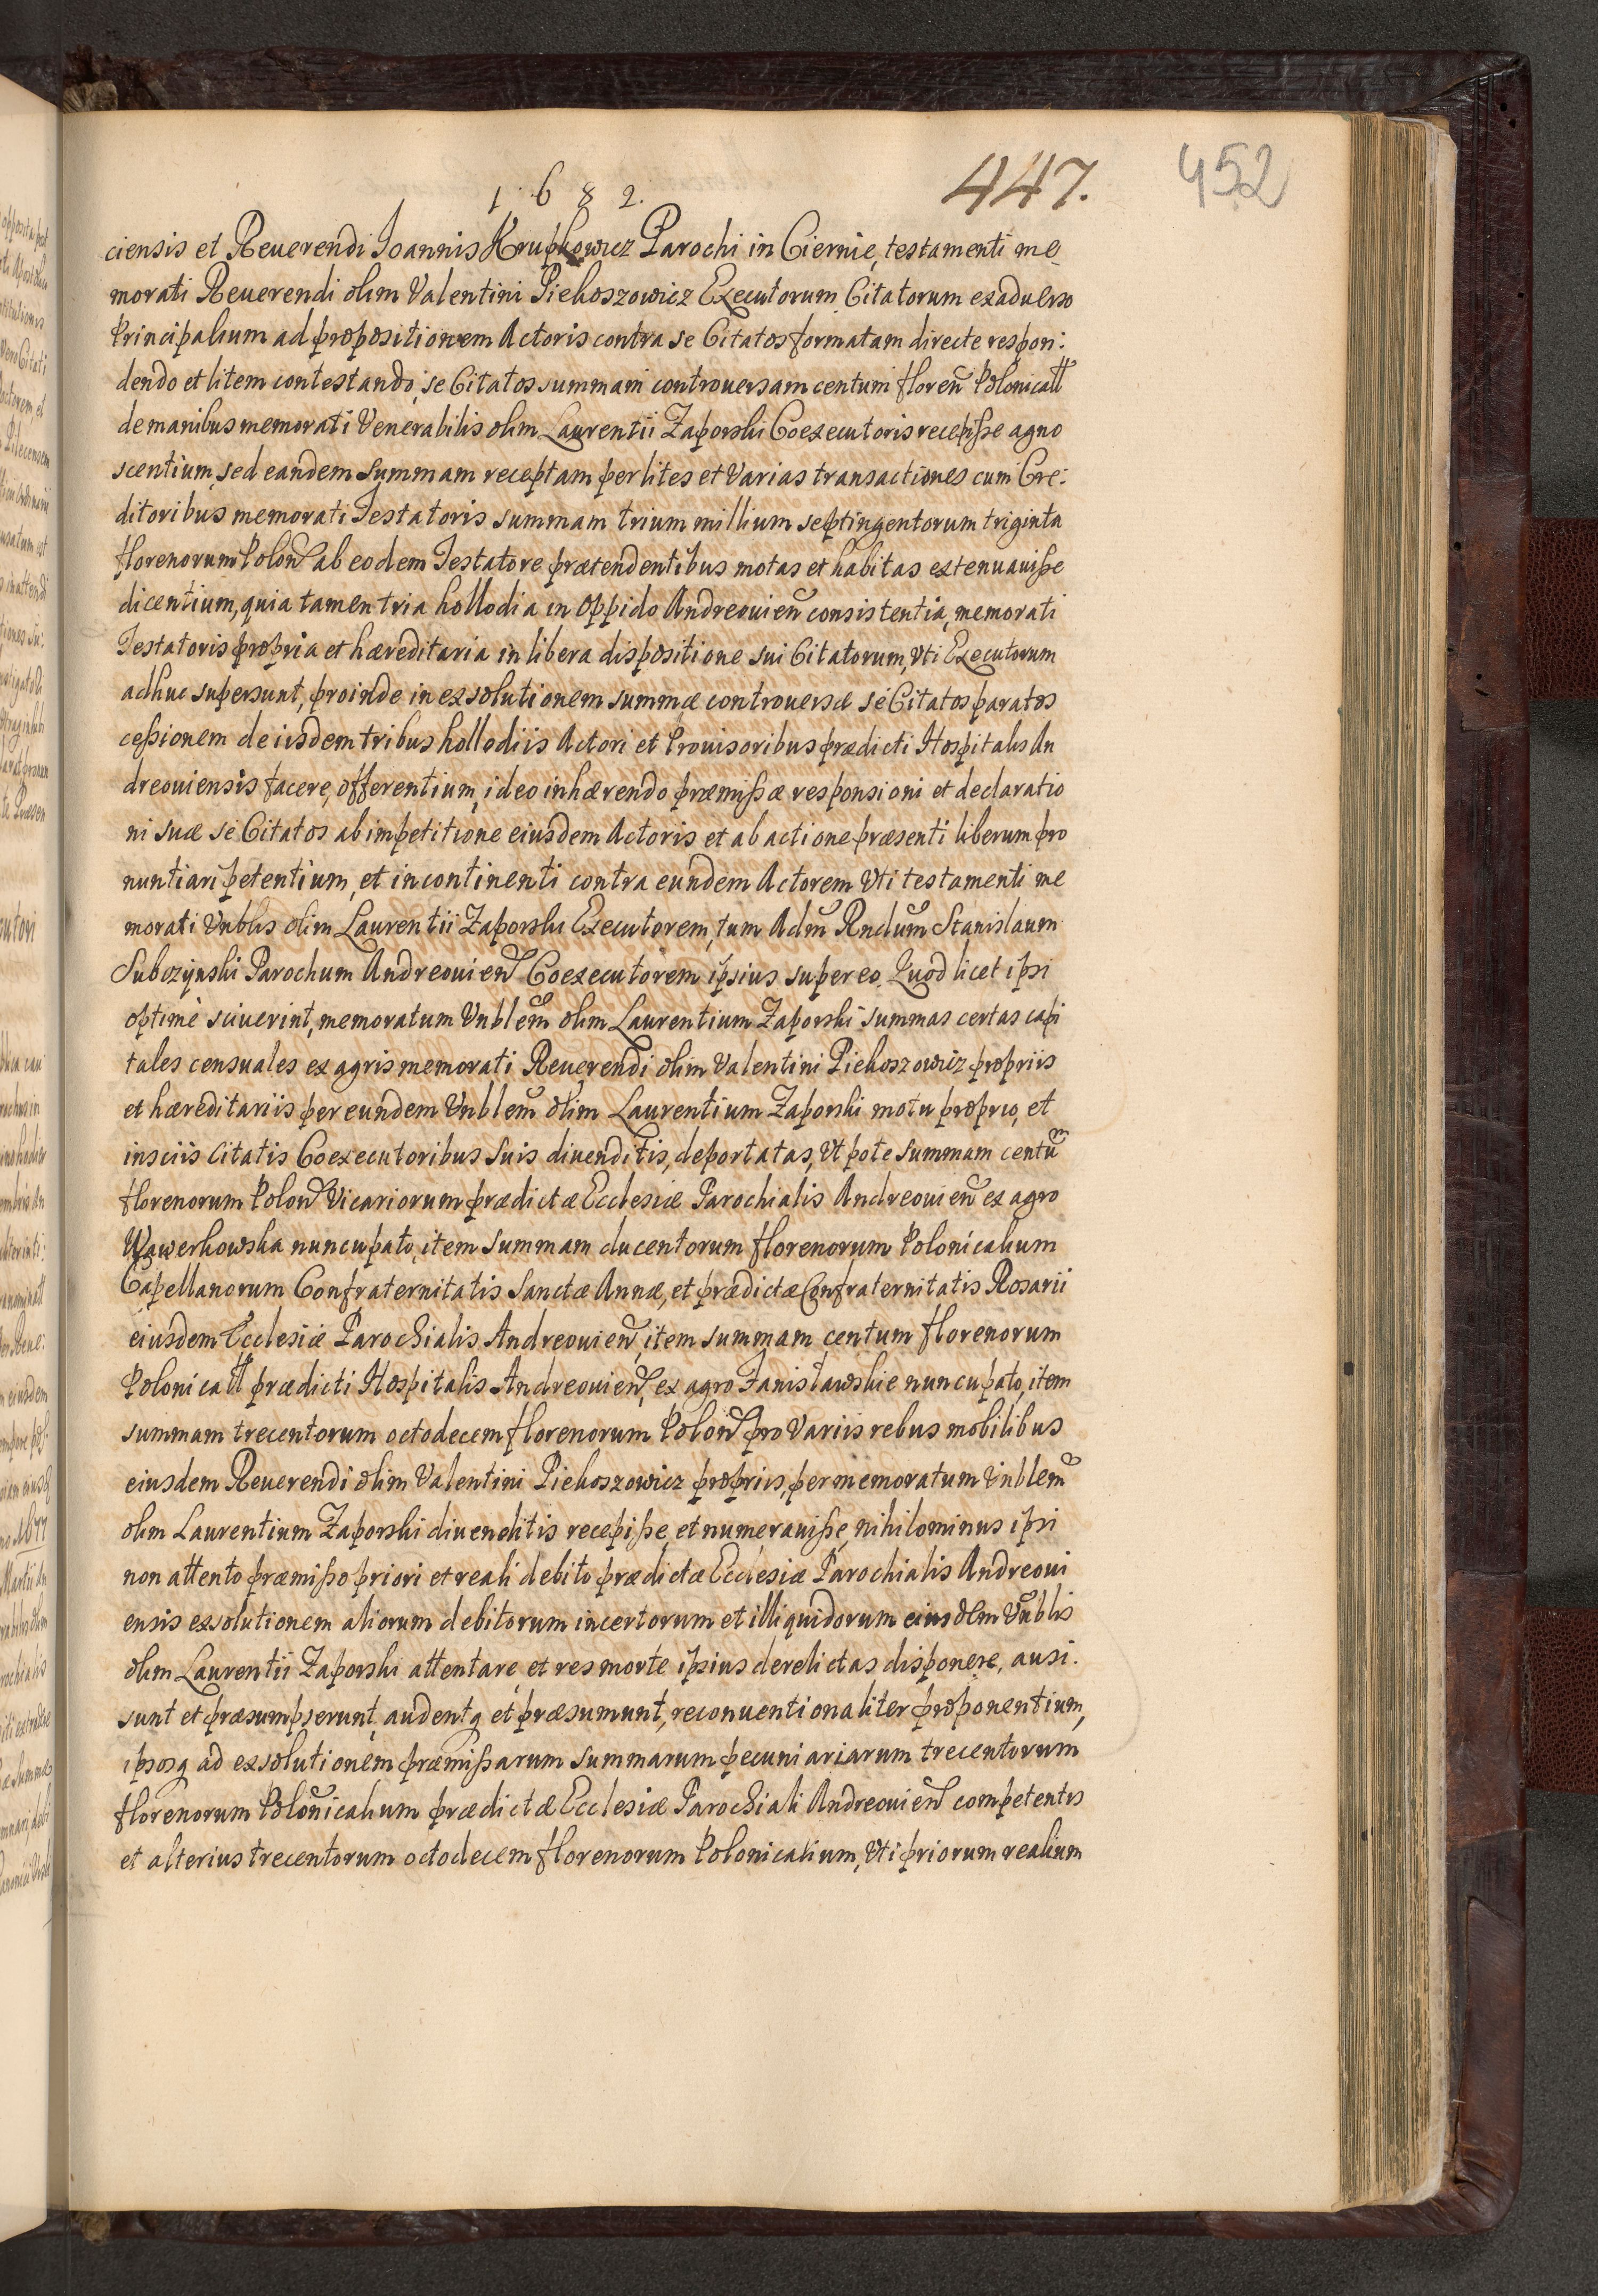 1682.
447.
452
ciensis et Reuerendi Ioannis Krupkowicz Parochi in Ciernie, testamenti me
morati Reuerendi olim Valentini Piekoszowicz Executorum Citatorum ex aduerso
Principalium ad propositionem Actoris contra se Citatos formatam directe respon:
dendo et litem contestando, se Citatos summam controuersam centum floreñ Polonicall
de manibus memorati Venerabilis olim Laurentii Zaporski Coexecutoris recepisse agno
scentium, sed eandem summam receptam per lites et varias transactiones cum Cre:
ditoribus memorati Testatoris summam trium millium septingentorum triginta
florenorum Polon ab eodem Testatore prætendentibus motas et habitas extenuauisse
dicentium, quia tamen tria hollodia in oppido Andreouieñ consistentia, memorati
Testatoris propria et hæreditaria in libera dispositione sui Citatorum, vti Executorum
adhuc supersunt, proinde in exsolutionem summæ controuersæ se Citatos paratos
cessionem de iisdem tribus hollodiis Actori et Prouisoribus prædicti Hospitalis An
dreouiensis facere, offerentium, ideo inhærendo præmissæ responsioni et declaratio
ni suæ se Citatos ab impetitione eiusdem Actoris et ab actione præsenti liberum pro
nuntiari petentium, et incontinenti contra eundem Actorem vti testamenti me
morati Vnblis olim Laurentii Zaporski Executorem, tum Adm̃ Rndum̃ Stanislaum
Subozynski Parochum Andreouien Coexecutorem ipsius super eo. Quod licet ipsi
optime sciuerint, memoratum Vnblem̃ olim Laurentium Zaporski summas certas capi
tales censuales ex agris memorati Reuerendi olim Valentini Piekoszowicz propriis
et hæreditariis per eundem Vnblem̃ olim Laurentium Zaporski motu proprio, et
insciis Citatis Coexecutoribus suis diuenditis, deportatas, vt pote summam centũ
florenorum Polon Vicariorum prædictæ Ecclesiæ Parochialis Andreouieñ ex agro
Wawerkowska nuncupato, item summam ducentorum florenorum Polonicalium
Capellanorum Confraternitatis Sanctæ Annæ, et prædictæ Confraternitatis Rosarii
eiusdem Ecclesiæ Parochialis Andreouieñ, item summam centum florenorum
Polonicall prædicti Hospitalis Andreouien, ex agro Janisławskie nuncupato, item
summam trecentorum octodecem florenorum Polon pro variis rebus mobilibus
eiusdem Reuerendi olim Valentini Piekoszowicz propriis, per memoratum Vnblem̃
olim Laurentium Zaporski diuenditis recepisse, et numerauisse, nihilominus ipsi
non attento præmisso priori et reali debito prædictæ Ecclesiæ Parochialis Andreoui
ensis exsolutionem aliorum debitorum incertorum et illiquidorum eiusdem Vnblis
olim Laurentii Zaporski attentare, et res morte ipsius derelictas disponere, ausi.
sunt et præsumpserunt, audentq et præsumunt, reconuentionaliter proponentium,
ipsosq ad exsolutionem præmissarum summarum pecuniariarum trecentorum
florenorum Polonicalium prædictæ Ecclesiæ Parochiali Andreouien competentis
et alterius trecentorum octodecem florenorum Polonicalium, vti priorum realium